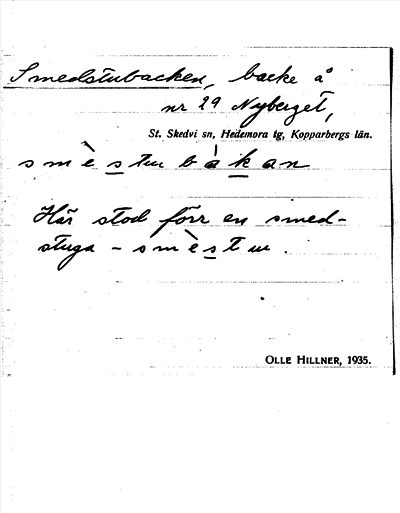 Smedstubacken, backe å
nr 29 Nyberget,
St. Skedvi sn, Hedemora tg, Kopparbergs län.
smèstu bákan
Här stod förr en smed-
stuga - smèstu.
OLLE HILLNER, 1935.